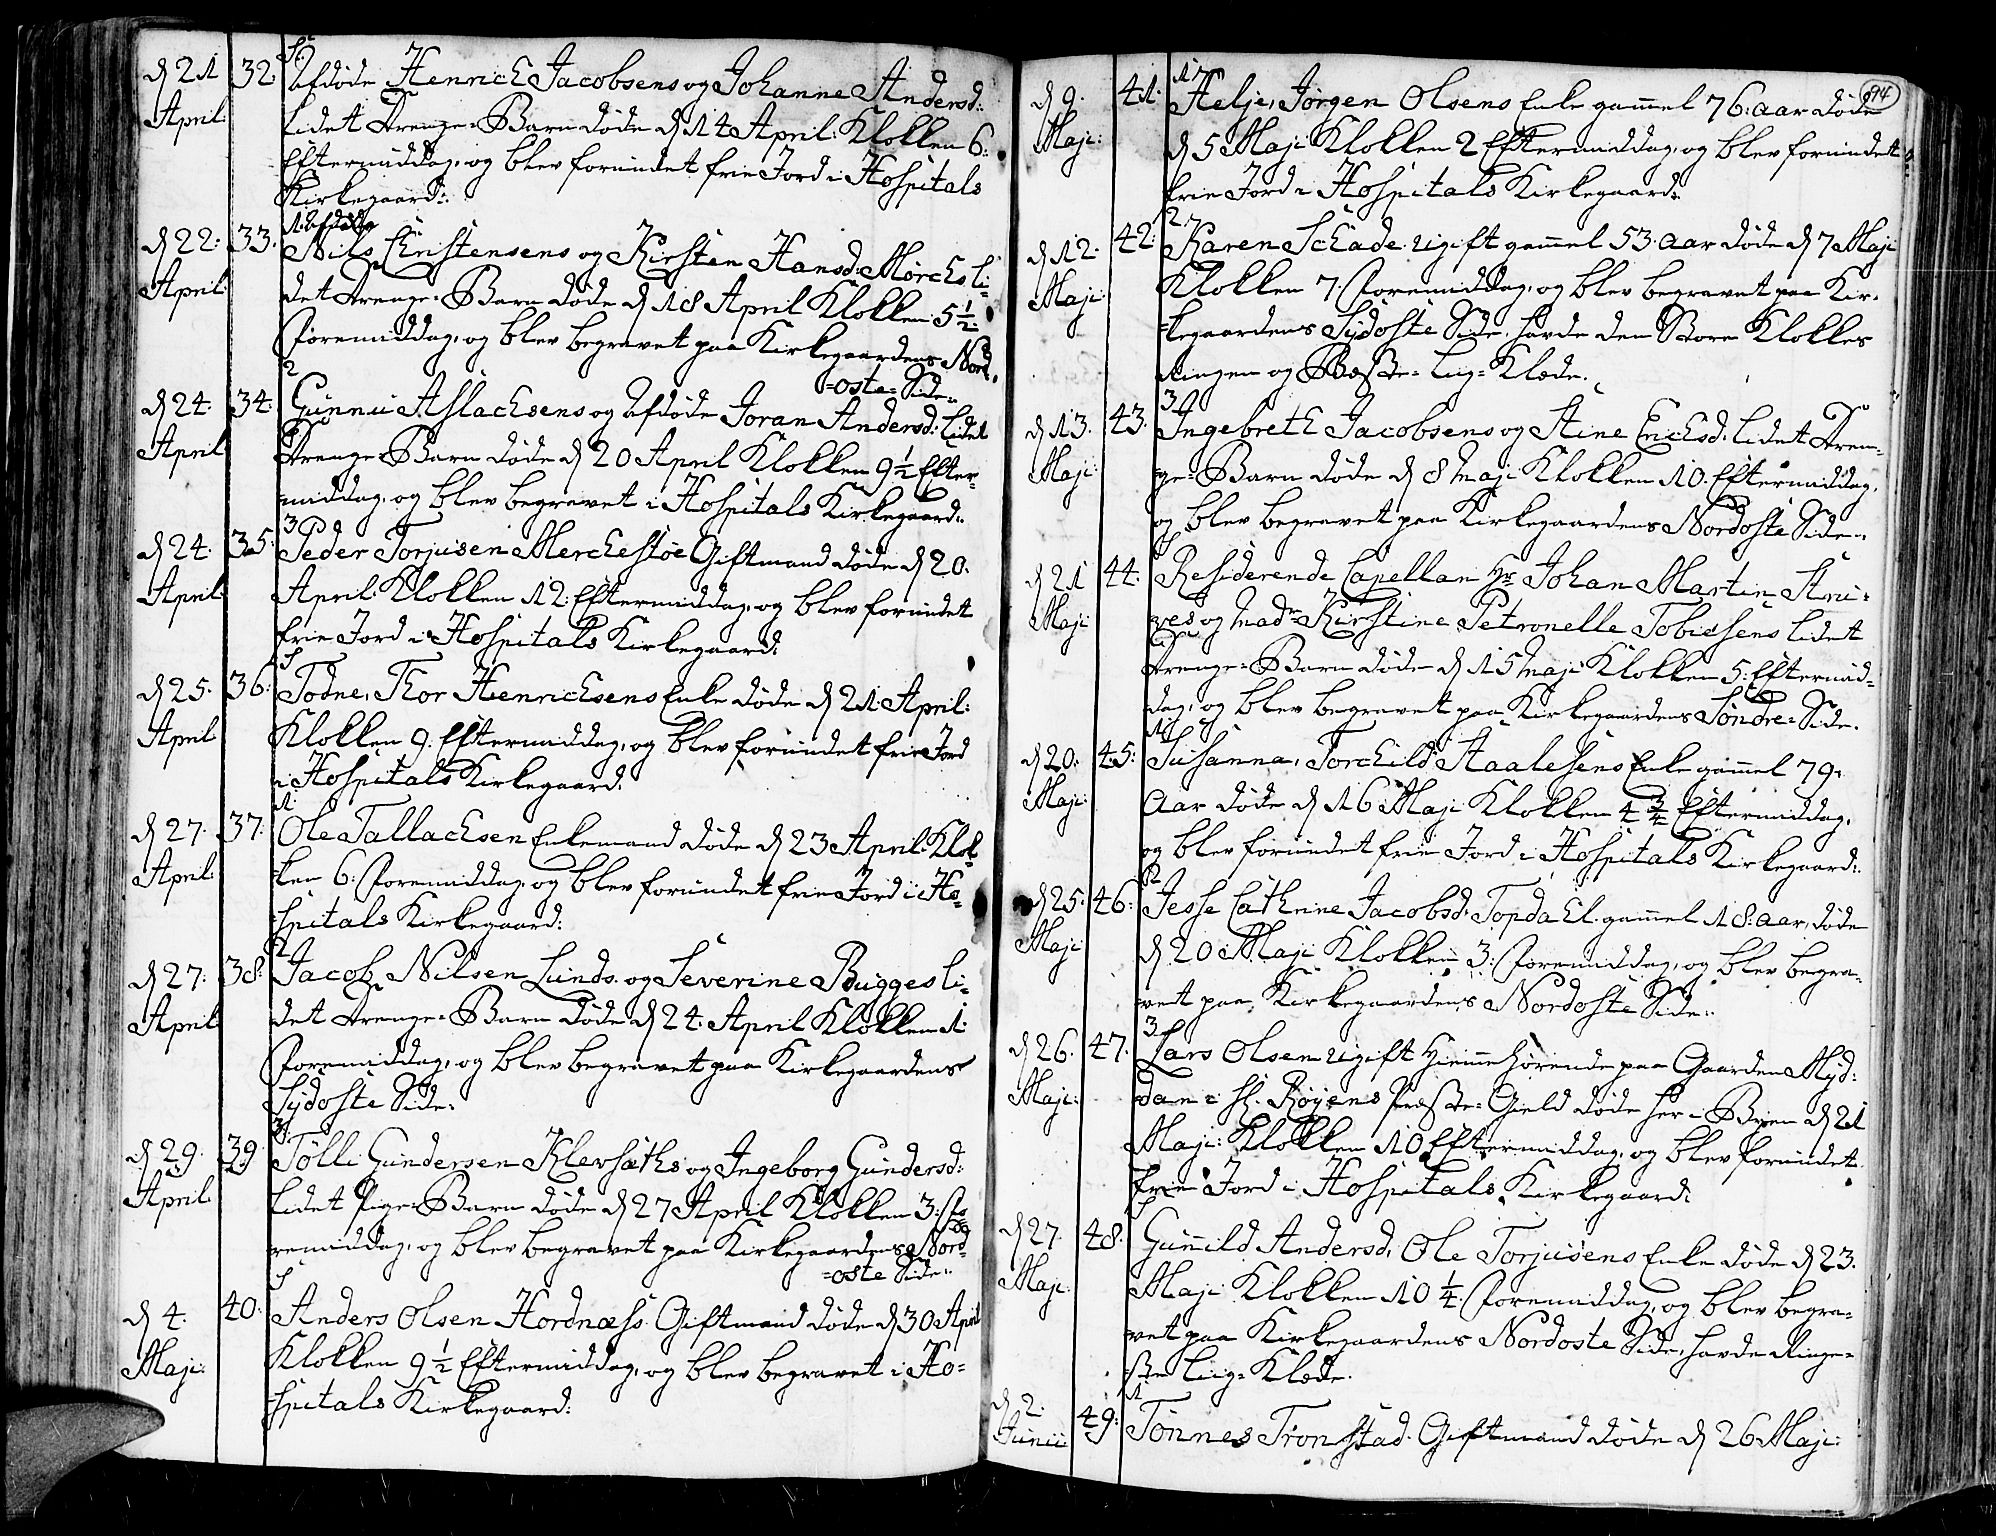 d 21 April: 32. Afdøde Henrich Jacobsens og Johanne Andersd:
lidet Drenge-Barn døde d 14 April: Klokken 6:
Eftermiddag, og blev forundet frie Jord i Hospitals
Kirkegaard:
d 22: April: 33. Nils Christensens og Kirsten Hansd: Mørchs li-
det Drenge-Barn døde d 18 April Klokken 5 1/2
Formiddag, og blev begravet paa Kirkegaardens Nord
=oste Side.
d 24: April 34: Gunnu Aslachsens og Afdøde Joran Andersd: Lidet
Drenge-Barn døde d 20 April Klokken 9 1/2 Efter-
middag, og blev begravet i Hospitals Kirkegaard:
d 24. April: 35: Peder Torjusen Merchestøe Giftmand døde d 20.
April: Klokken 12: Eftermiddag, og blev forundet
frie Jord i Hospitals Kirkegaard:
d 25. April 36: Todne, Thor Henrichsens Enke døde d 21 April:
Klokken 9. Eftermiddag, og blev forundet frie Jord
i Hospitals Kirkegaard:
d 27. April: 37. Ole Tallachsen Enkemand døde d 23 April: Klok-
ken 6: Formiddag, og blev forundet frie Jord i Ho-
spitals Kirkegaard:
d 27: April 38: Jacob Nilsen Lunds og Severine Bugges li-
det Drenge-Barn døde d 24: April Klokken 1:
Formiddag, og blev begravet paa Kirkegaardens
Sydoste Side:
d 29. April 39 Tølli Gundersen Klevsæths og Ingeborg Gundersd:
lidet Pige-Barn døde d 27 April Klokken 3: Fo-
remiddag, og blev begravet paa Kirkegaardens Nord-
=oste Side:
d 4. Maji: 40: Anders Olsen Hordnæss Giftmand døde d 30 April
Klokken 9 1/2 Eftermiddag, og blev begravet i Ho-
spitals Kirkegaard:
94
d 9. Maji: 41: Helje, Jørgen Olsens Enke gammel 76: aar døde
d 5 Maji Klokken 2 Eftermiddag, og blev forundet
frie Jord i Hospitals Kirkegaard:
d 12. Maji 42: Karen Schade ugift gammel 53. aar døde d 7 Maji
Klokken 7 Formiddag, og blev begravet paa Kir-
=kegaardens Sydoste Side, havde den Store Klokkes
Ringen og Beste-Liig-Klæde.
d 13. Maji 43. Ingebreth Jacobsens og Stine Erichsd: lidet Dren-
ge-Barn døde d 8 Maji Klokken 10. Eftermiddag,
og blev begravet paa Kirkegaardens Nordoste Side:
d 21 Maji 44. Residerende Capellan Hr Johan Martin Stru-
ves og Madme Kirstine Petronelle Tobiesens lidet
Drenge-Barn døde d 15 Maji Klokken 5: Eftermid-
dag, og blev begravet paa Kirkegaardens Søndre-Side.
d 20: Maji: 45: Susanna, Torchild Staalesens Enke gammel 79:
aar døde d 16 Maji Klokken 4 3/4 Eftermiddag,
og blev forundet frie Jord i Hospitals Kirkegaard:
d 25: Maji 46: Jesse Cathrine Jacobsd: Topdahl gammel 18: aar, døde
d 20 Maji Klokken 3: Formiddag, og blev begra-
vet paa Kirkegaardens Nordoste Side:
d 26. Maji: 47. Lars Olsen ugift Hiemmehørende paa Gaarden Myd-
dan i Røyens Præste-Gield døde her i Byen d 21
Maji: Klokken 10 Eftermiddag, og blev forundet
frie Jord i Hospitals Kirkegaard:
d 27. Maji: 48: Gunnild Andersd: Ole Torjusens Enke døde d 23.
Maji Klokken 10 1/4. Formiddag, og blev begra-
vet paa Kirkegaardens Nordoste Side, havde Ringe-
ste Liig-Klæde.
d 2. Junii 49: Tønnes Tronstad Giftmand døde d 26 Maji: